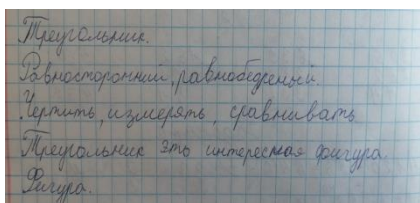 Треугольник.
Равносторонний, равнобедреный.
Чертить, измерять, сравнивать
Треугольник это интересная фигура.
Фигура.